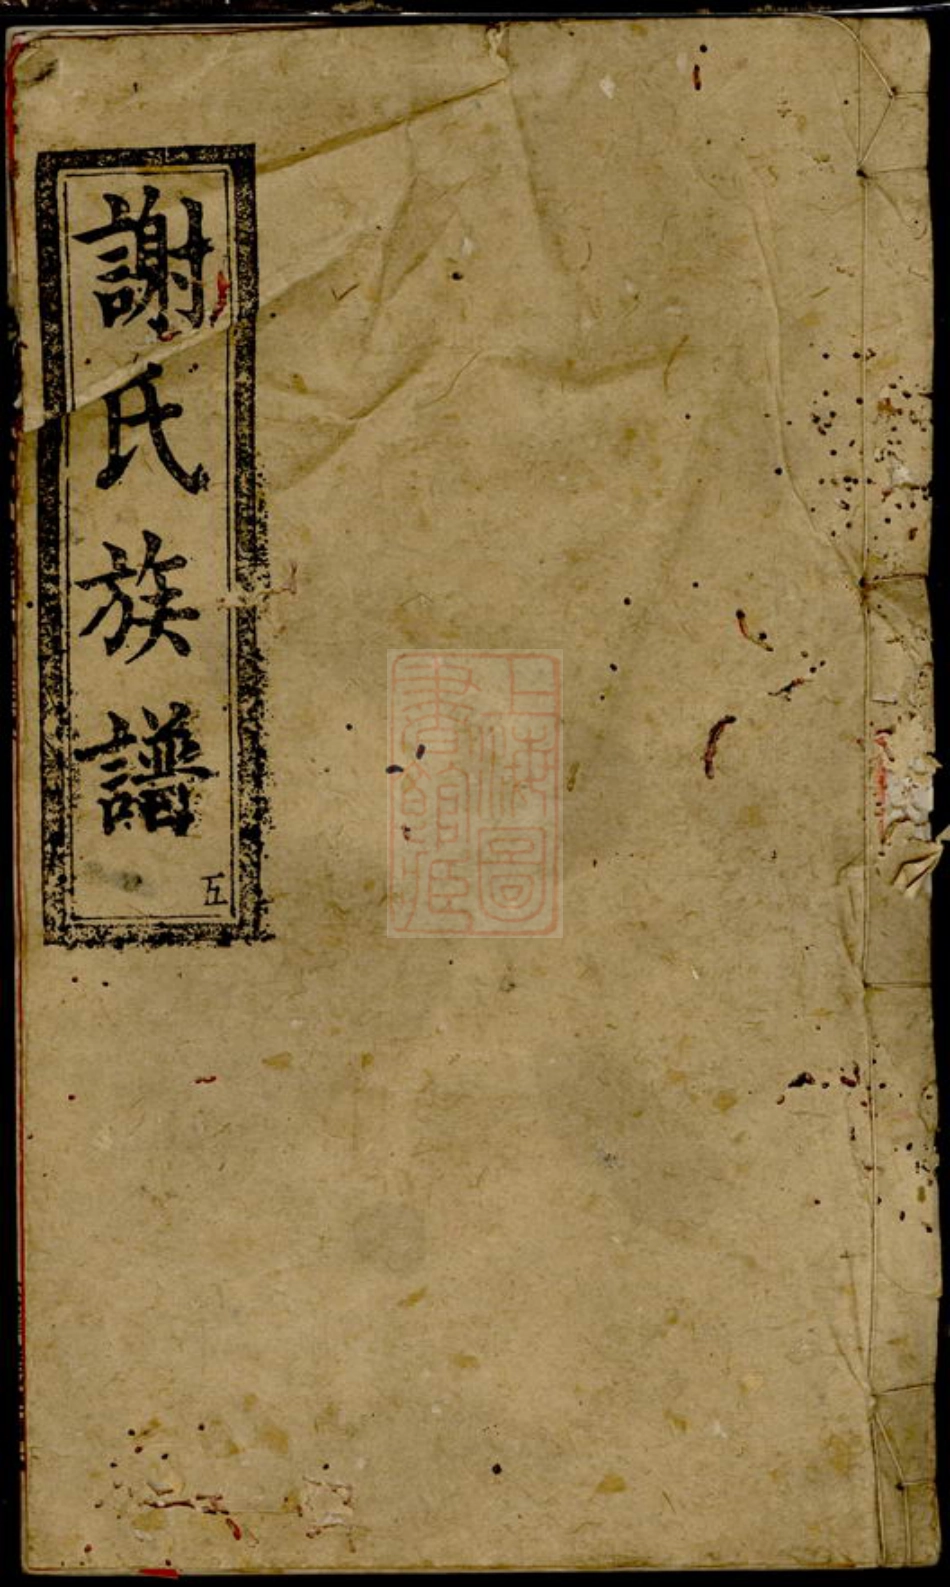 謝氏族譜
五
上海圖
書館藏